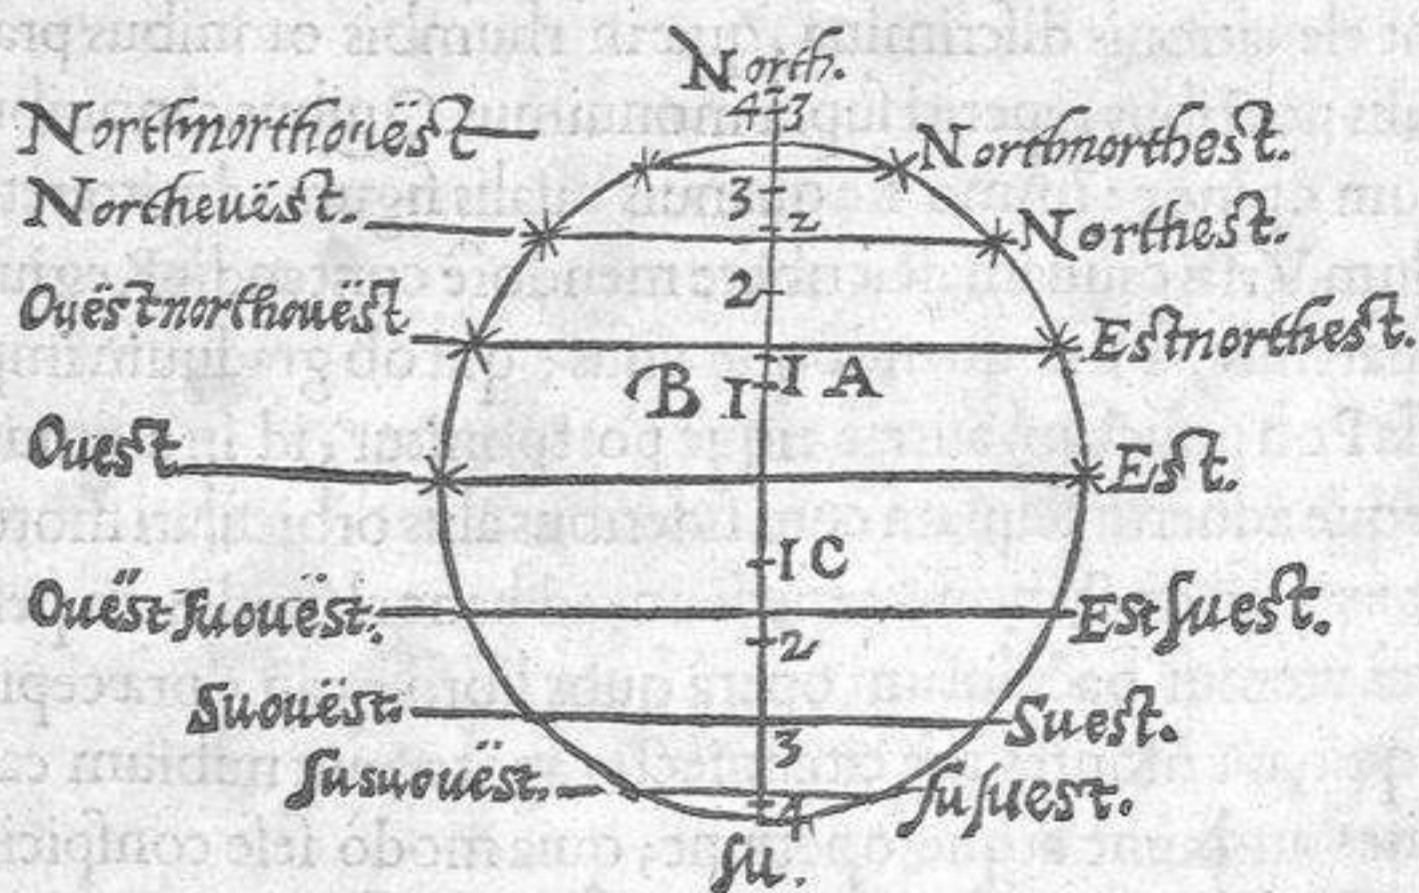 North.
4 3
Northnorthouëst Northnorthest.
3
Northeuëst. 2 Northest.
2
Ouëstnorthouëst Estnorthest.
B I I A
Ouest Est.
I C
Ouëst ſuouëst. Est ſuest.
2
Suouëst. Suest.
3
ſusuouëst. ſuſuest.
4
ſu.